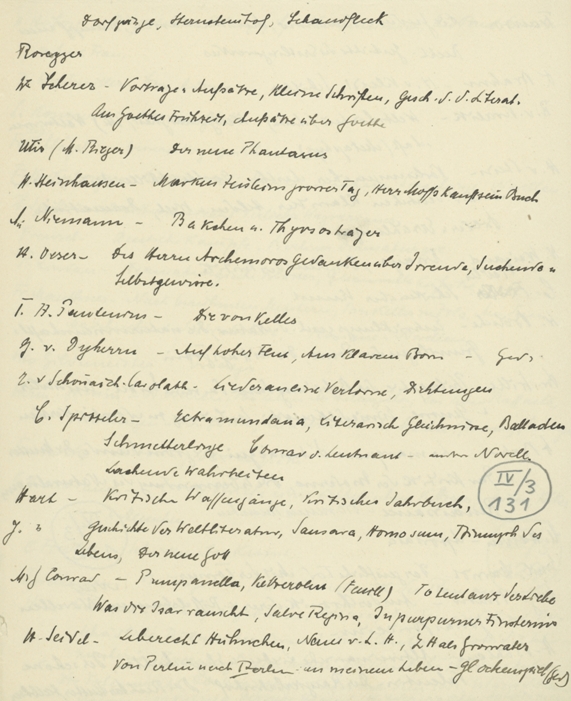 Dorfgänge, Sternsteinhof, Schandfleck
Rosegger
W. Scherer - Vorträge u. Aufsätze, Kleine Schriften, Gesch. d. d. Literat.
Aus Goethes Frühzeit, Aufsätze über Goethe
Utis (M. Thieger) Der neue Phantasus
H. Steinhausen - Markus Zeisleins grosser Tag, Herr Moffs kauft sein Buch
A. Niemann - Bakchen u. Thyrsosträger
H. Oeser - Des Herrn Archemoros Gedanken über Irrende, Suchende u
Selbstgewisse.
T. H. Pantenius - Die von Kelles
G. v. Dyherrn - Auf hoher Flut, Aus klarem Born - Ged.
E. v Schönaich-Carolath - Lieder an eine Verlorne, Dichtungen
C. Spitteler - Extramundana, Literarisch Gleichnisse, Balladen
Schmetterlinge Conrad d. Leutnant - Novelle
Lachende Wahrheiten
IV/3
131
Hart - Kritische Waffengänge, Kritisches Jahrbuch,
J. " Geschichte der Weltliteratur, Sansara, Homo sum, Triumph des
Lebens, Der neue Gott
M G Conrad - Pumpanella, Totentanz der Liebe
Was die Isar rauscht, Salve Regina, In purpurner Finsternis
H. Seidel - Leberecht Hühnchen, Neues v. L. H., L H als Grossvater
Von Perlin nach Berlin aus meinem Leben - Glockenspiel (Ged)